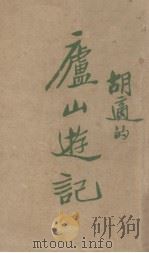 胡適的
廬山遊記
搜狗
mtoou.info